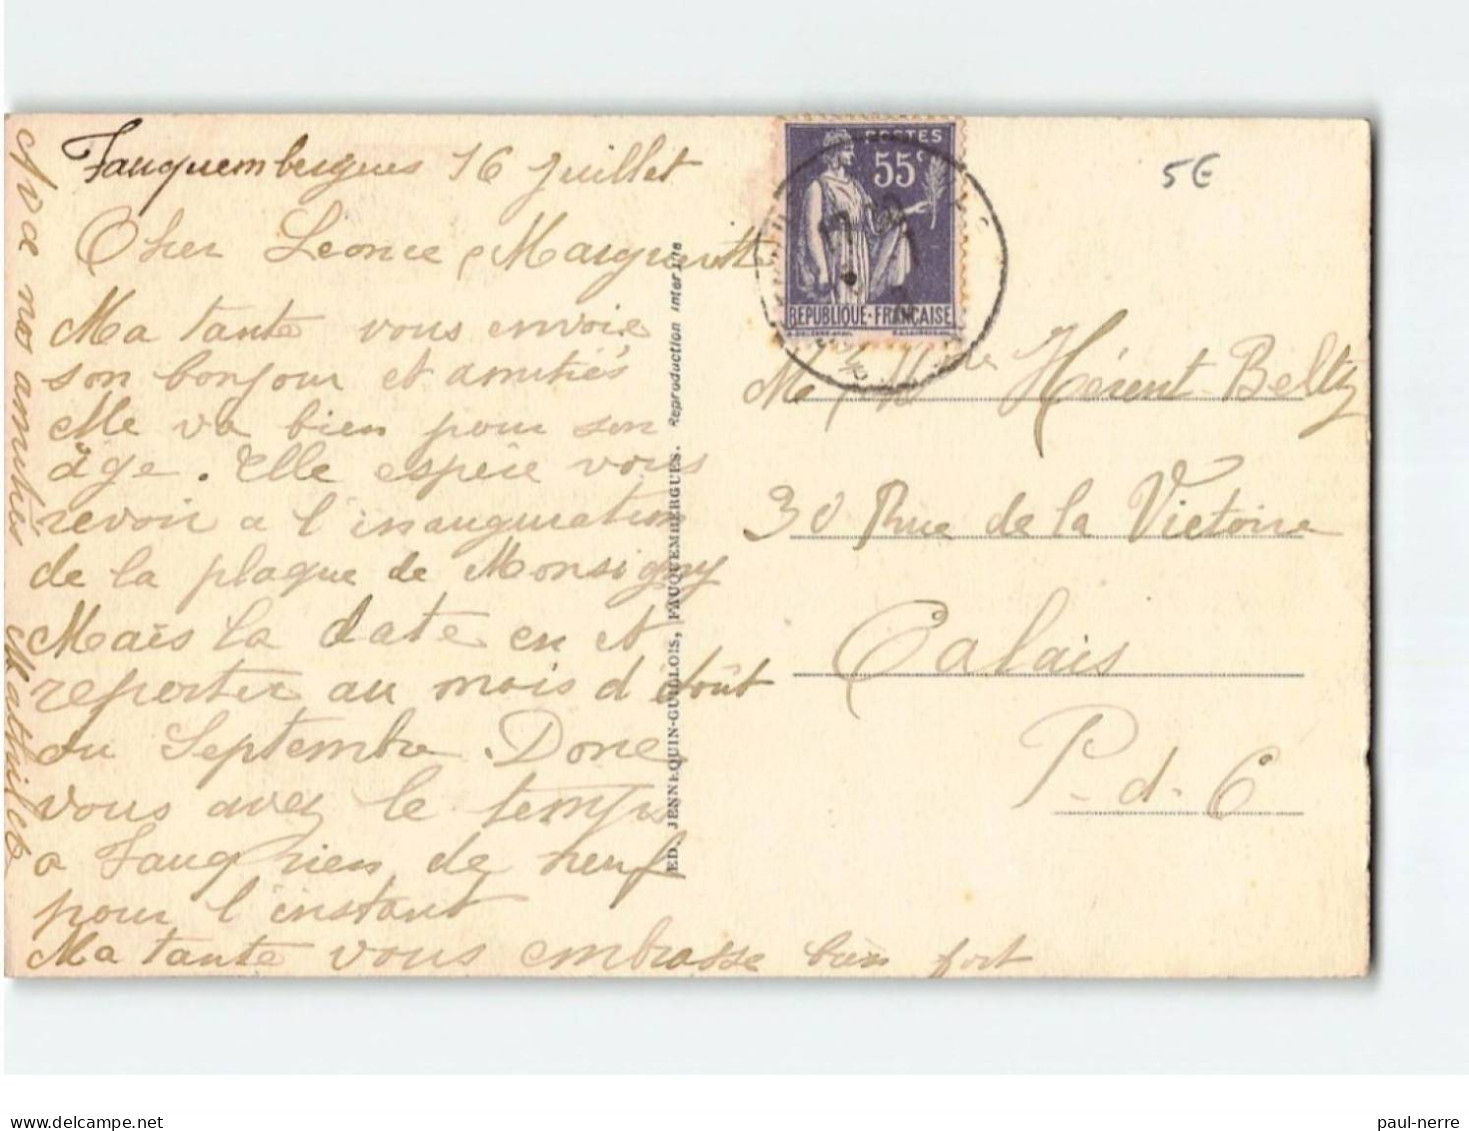 Fauquembergues 16 juillet
Cher Leonce, Marguerite
Ma tante vous envoie
son bonjour et amitiés
Elle va bien pour son
âge. Elle espère vous
revoir a l'inauguration
de la plaque de Monsigny
Mais la date en et
reporter au mois d'août
ou Septembre. Donc
vous avez le temps
a Fauq rien de neuf
pour l'instant
Ma tante vous embrasse bien fort
nos amitiés Mathilde
ED. JENNEQUIN-GUILLOIS, FAUQUEMBERGUES. Reproduction interdite
POSTES
55c
REPUBLIQUE-FRANÇAISE
5€
Hérent-Beltz
30 Rue de la Victoire
Calais
P-d-C
paul-nerre